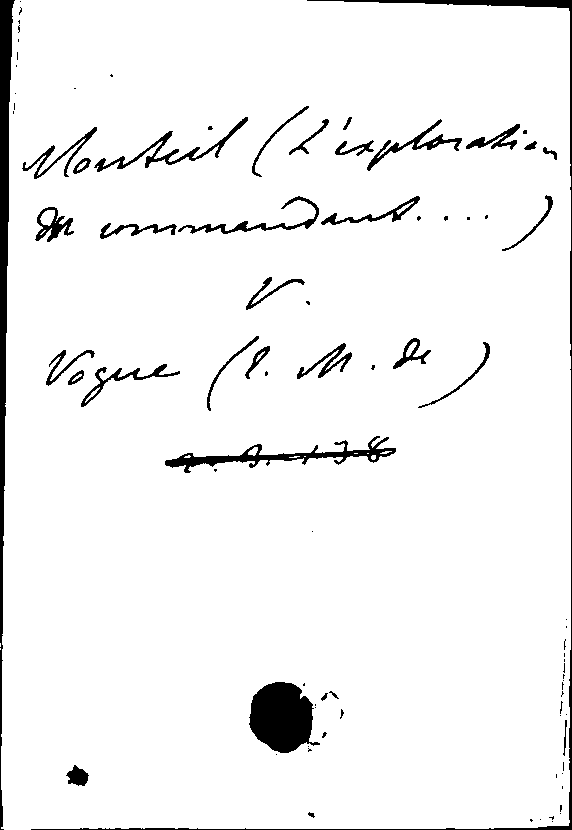 Monteil (L'exploration
du commandant....)
V.
Vogue (E. M. de)